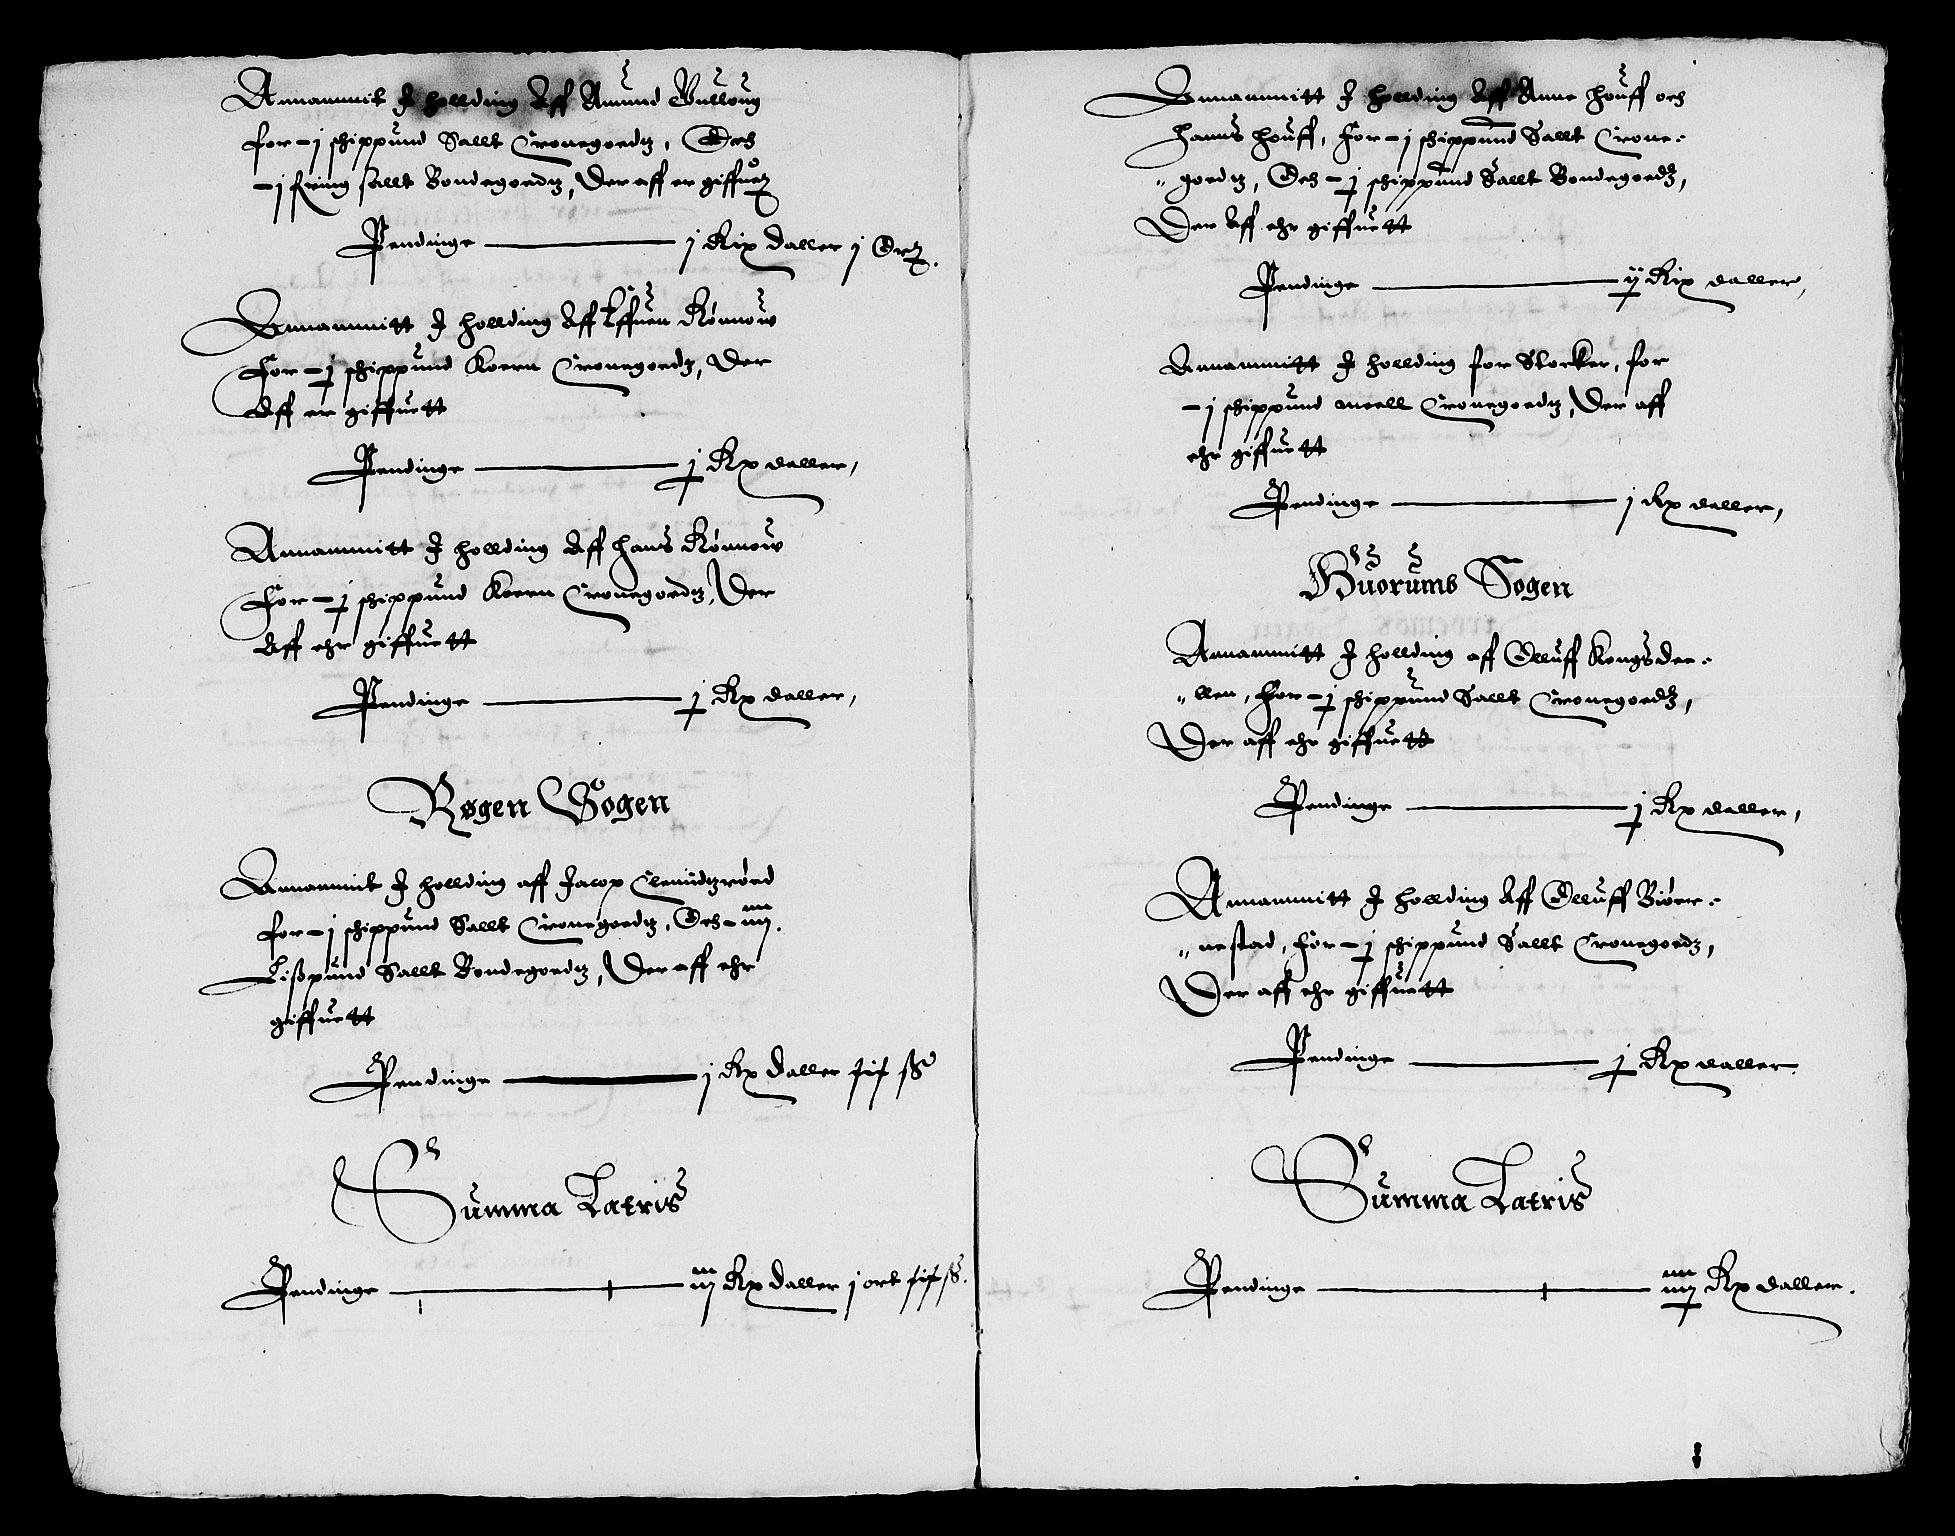 Annammit J holding Aff Amund Bulloug
for - j schippund Sallt Cronegordtz, Och
- j fring sallt Bondegordtz, Der aff er giffuet
Pendinge j Rix daller j Ort.
Annammitt J holding Aff Effuen Kønnow
For - j schippund Korn Cronegordtz, Der
Aff er giffuett
Pendinge j Rx daller,
Annammitt J holding Aff Hans Kønnow
For - j schippund Korn Cronegordtz, Der
Aff ehr giffuett
Pendinge j Rx daller,
Røgen Sogen
Annammit J holding aff Jacop Clemidtzrød
for - j schippund Sallt Cronegordtz, Och - iiij.
Lißpund Sallt Bondegordtz, Der aff ehr
giffuett
Pendinge j Rx daller ß
Summa Latris
Pendinge Rx daller j ort ß.
Annammitt J holding Aff Anne Houff och
Hanns Houff, For - j schippund Sallt Crone-
" gordtz, Och - j schippund Sallt Bondegordtz,
Der Aff ehr giffuett
Pendinge ij Rix daller,
Annammitt J holding for Stocker, for
- j schippund meell Cronegordtz, Der aff
ehr giffuett
Pendinge j Rx daller,
Huorums Sogen
Annammitt J holding aff Olluff Kongsdee-
" llen, For - j schippund Sallt Cronegordtz,
Der aff ehr giffuett
Pendinge j Rx daller,
Annammitt J holding Aff Olluff Biøre-
" nestad, For - j schippund Sallt Cronegordtz,
Der aff ehr giffuett
Pendinge j Rx daller.
Summa Latris
Pendinge Rx daller.